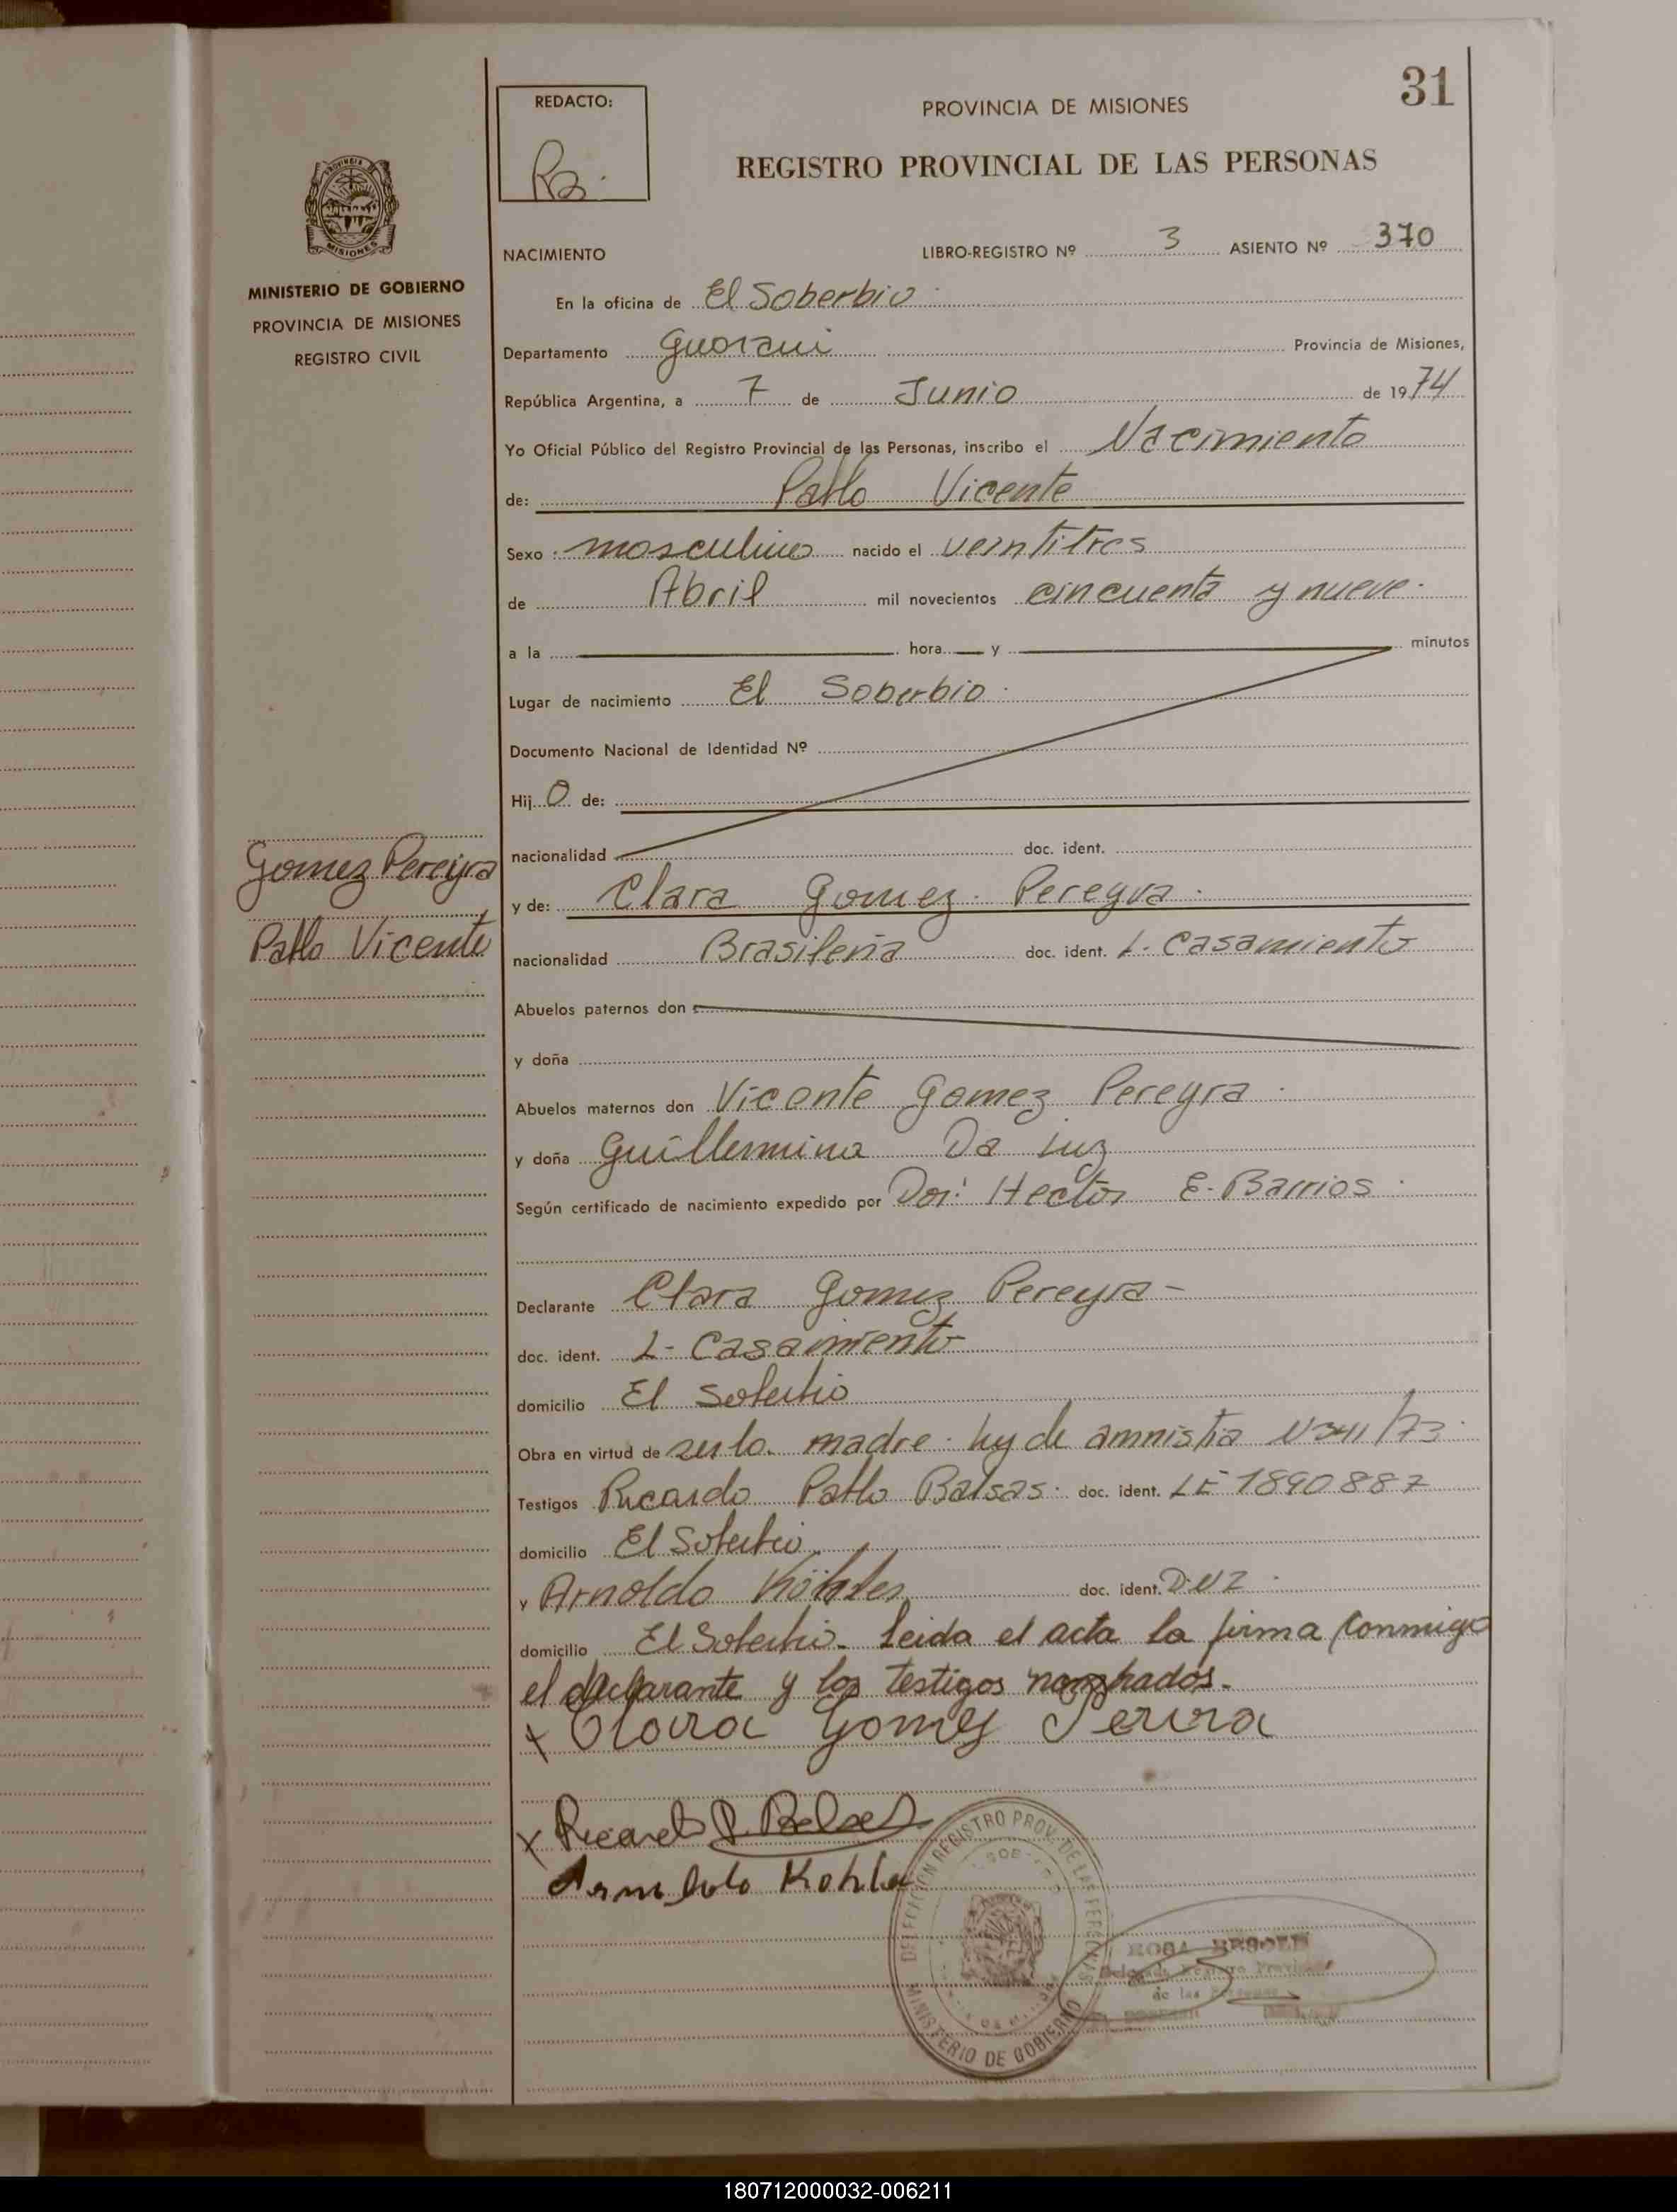 31
REDACTO:
PROVINCIA DE MISIONES
REGISTRO PROVINCIAL DE LAS PERSONAS
PROVINCIA
MISIONES
MINISTERIO DE GOBIERNO
PROVINCIA DE MISIONES
REGISTRO CIVIL
NACIMIENTO LIBRO-REGISTRO Nº 3 ASIENTO Nº 370
En la oficina de El Soberbio
Departamento Guarani Provincia de Misiones,
República Argentina, a 7 de Junio de 1974
Yo Oficial Público del Registro Provincial de las Personas, inscribo el Nacimiento
de: Pablo Vicente
Sexo masculino nacido el veintitres
de Abril mil novecientos cincuenta y nueve.
a la hora y minutos
Lugar de nacimiento El Soberbio
Documento Nacional de Identidad Nº
Hijo de:
nacionalidad doc. ident.
Gomez Pereyra
Pablo Vicente
y de: Clara Gomez Pereyra
nacionalidad Brasileña doc. ident. L. Casamiento
Abuelos paternos don
y doña
Abuelos maternos don Vicente Gomez Pereyra
y doña Guillermina Da Luz
Según certificado de nacimiento expedido por Dor: Hector E. Barrios
Declarante Clara Gomez Pereyra -
doc. ident. L- Casamiento
domicilio El Soberbio
Obra en virtud de ser la madre. ley de amnistia
Testigos Ricardo Pablo Balsas. doc. ident. LE 1890887
domicilio El Soberbio
y Arnoldo Köhler doc. ident.
domicilio El Soberbio. Leida el acta la firma conmigo
el declarante y los testigos nombrados.
x Clara Gomez Perira
x Ricardo P. Balsas
Arnoldo Kohler
DELEGACION REGISTRO PROV. DE LAS PERSONAS
MINISTERIO DE GOBIERNO
ROSA
Registro Provincial
de las Personas
180712000032-006211